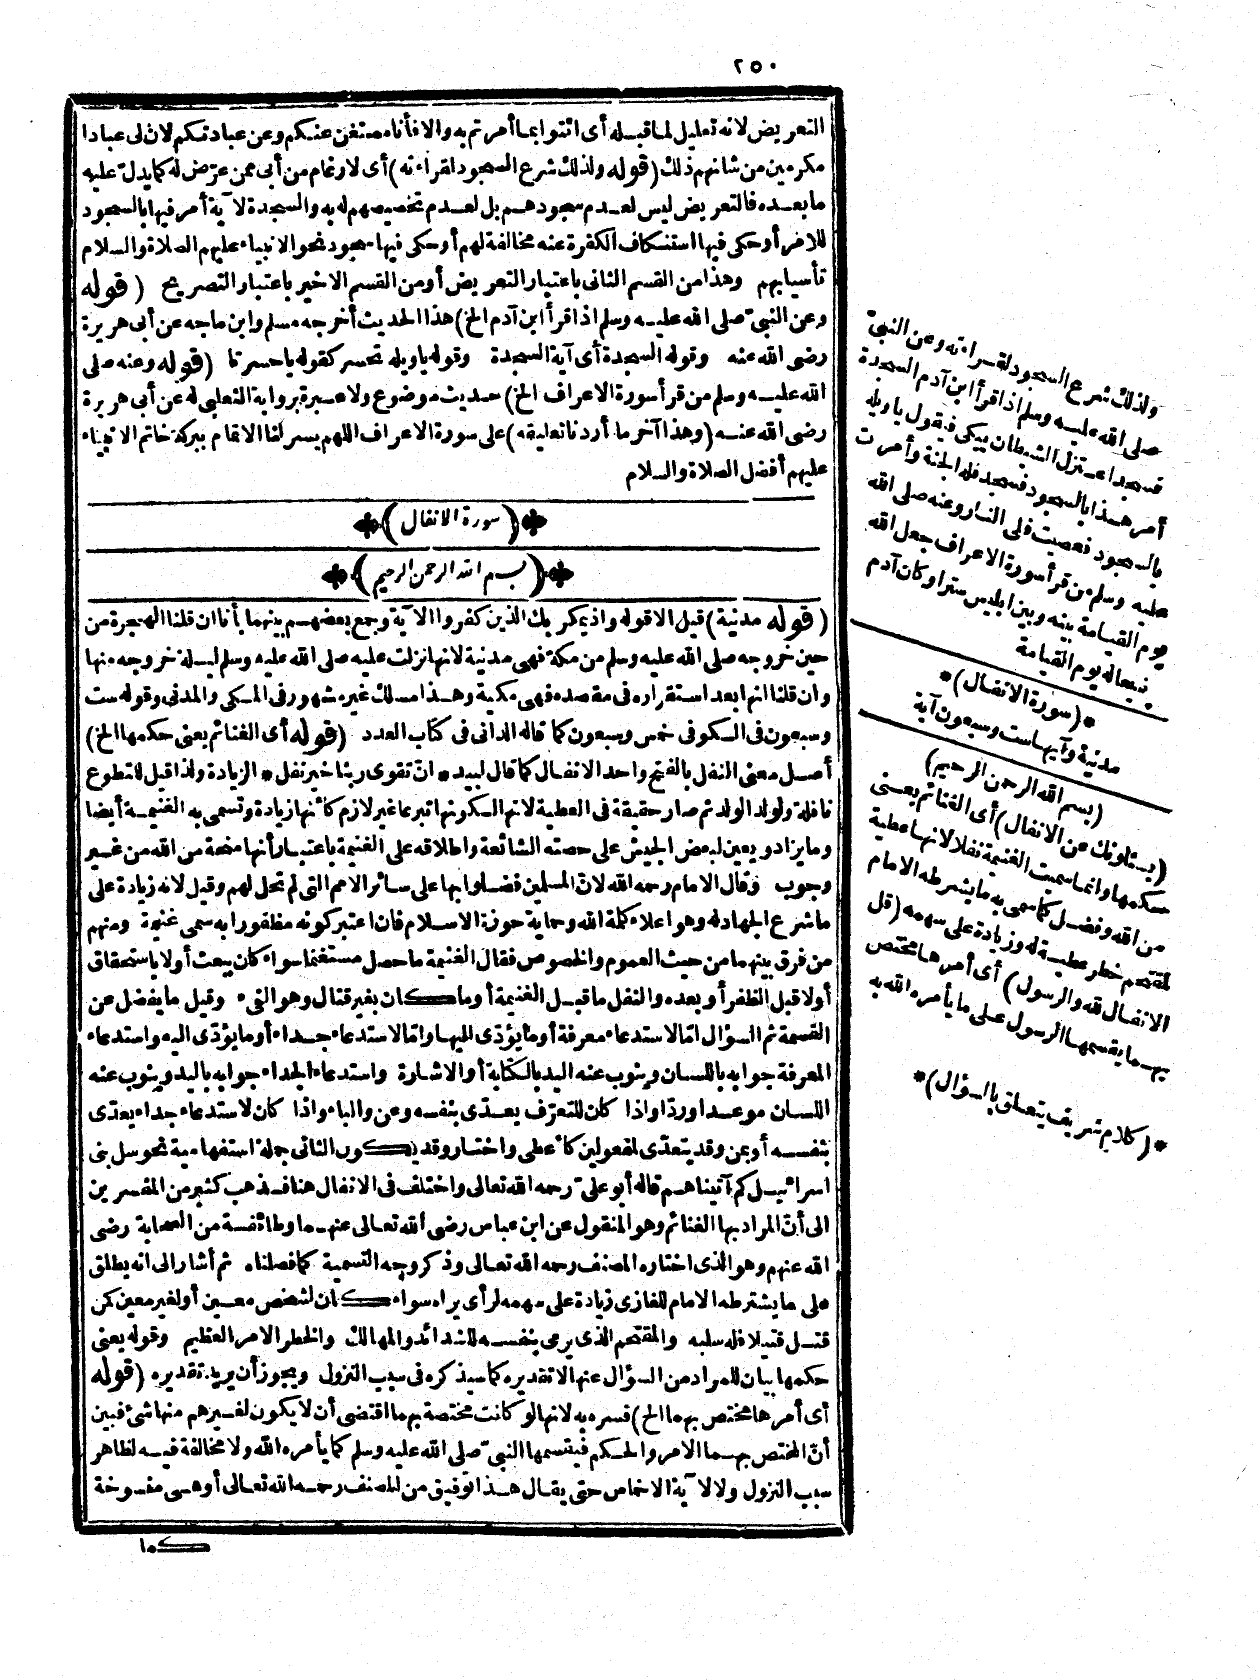 ٢٥٠
التعريض لانه تعليل لما قبله أى ائتوا بما أمرتم به والا فأناه مستغن عنكم وعن عبادتكم لان لى عبادا
مكرمين من شانهم ذلك (قوله ولذلك شرع السجود لقراءته) أى لارغام من أبى ممن عرّض له كما يدل عليه
ما بعده فالتعريض ليس لعدم سجودهم بل لعدم تخصيصهم له به والسجدة لآية أمر فيها بالسجود
للامر أو حكى فيها استنكاف الكفرة عنه مخالفة لهم أو حكى فيها سجود نحو الانبياء عليهم الصلاة والسلام
تأسيا بهم وهذا من القسم الثانى باعتبار التعريض أو من القسم الاخير باعتبار التصريح (قوله
وعن النبىّ صلى الله عليه وسلم اذا قرأ ابن آدم الخ) هذا الحديث أخرجه مسلم وابن ماجه عن أبى هريرة
رضى الله عنه وقوله السجدة أى آية السجدة وقوله ياويله تحسر كقوله ياحسرتا (قوله وعنه صلى
الله عليه وسلم من قرأ سورة الاعراف الخ) حديث موضوع ولا عبرة برواية الثعلبى له عن أبى هريرة
رضى الله عنه (وهذا آخر ما أردنا تعليقه) على سورة الاعراف اللهم يسر لنا الاتمام ببركة خاتم الانبياء
عليهم أفضل الصلاة والسلام
(سورة الانفال)
(بسم الله الرحمن الرحيم)
(قوله مدنية) قيل الا قوله واذ يمكر بك الذين كفروا الآية وجمع بعضهم بينهما بأنا ان قلنا الهجرة من
حين خروجه صلى الله عليه وسلم من مكة فهى مدنية لانها نزلت عليه صلى الله عليه وسلم ليلة خروجه منها
وان قلنا انها بعد استقراره فى مقصده فهى مكية وهذا مسلك غير مشهور فى المكى والمدنى وقوله ست
وسبعون فى الكوفى خمس وسبعون كما قاله الدانى فى كتاب العدد (قوله أى الغنائم يعنى حكمها الخ)
أصل معنى النفل بالفتح واحد الانفال كما قال لبيد * انّ تقوى ربنا خير نفل * الزيادة ولذا قيل للتطوع
نافلة ولولد الولد ثم صار حقيقة فى العطية لانها لكونها تبرعا غير لازم كأنها زيادة وتسمى به الغنيمة أيضا
وما يزاد ويعين لبعض الجيش على حصته الشائعة واطلاقه على الغنيمة باعتبار أنها منحة من الله من غير
وجوب وقال الامام رحمه الله لانّ المسلمين فضلوا بها على سائر الامم التى لم تحل لهم وقيل لانه زيادة على
ما شرع الجهاد له وهو اعلاء كلمة الله وحماية حوزة الاسلام فان اعتبر كونه مظفورا به سمى غنيمة ومنهم
من فرق بينهما من حيث العموم والخصوص فقال الغنيمة ما حصل مستغنما سواء كان يبعث أولا باستحقاق
أولا قبل الظفر أو بعده والنفل ما قبل الغنيمة أو ما كان بغير قتال وهو الفىء وقيل ما يفضل عن
القسمة ثم السؤال امّا لاستدعاء معرفة أو ما يؤدّى اليها وامّا لاستدعاء جداء أو ما يؤدّى اليه واستدعاء
المعرفة جوابه باللسان وينوب عنه اليد بالكتابة أو الاشارة واستدعاء الجداء جوابه باليد وينوب عنه
اللسان موعدا وردّا واذا كان للتعرّف يعدّى بنفسه وعن والباء واذا كان لاستدعاء جداء يعدّى
بنفسه أو بمن وقد يتعدّى لمفعولين كأعطى واختار وقد يكون الثانى جملة استفهامية نحو سل بنى
اسرائيل كم آتيناهم قاله أبو علىّ رحمه الله تعالى واختلف فى الانفال هنا فذهب كثير من المفسرين
الى أنّ المراد بها الغنائم وهو المنقول عن ابن عباس رضى الله تعالى عنهما وطائفة من الصحابة رضى
الله عنهم وهو الذى اختاره المصنف رحمه الله تعالى وذكر وجه التسمية كما فصلناه ثم أشار الى انه يطلق
على ما يشترطه الامام للغازى زيادة على سهمه لرأى يراه سواء كان لشخص معين أو لغير معين كمن
قتل قتيلا فله سلبه والمقتحم الذى يرمى بنفسه للشدائد والمهالك والخطر الامر العظيم وقوله يعنى
حكمها بيان للمراد من السؤال عنها لا تقديره كما سيذكره فى سبب النزول ويجوز أن يريد تقديره (قوله
أى أمرها مختص بهما الخ) فسره به لانها لو كانت مختصة بهما اقتضى أن لا يكون لغيرهم منها شئ فبين
أنّ المختص بهما الامر والحكم فيقسمها النبىّ صلى الله عليه وسلم كما يأمره الله ولا مخالفة فيه لظاهر
سبب النزول ولا لآية الاخماس حتى يقال هذا توفيق من المصنف رحمه الله تعالى أو هى منسوخة
كما
ولذلك شرع السجود لقراءته وعن النبىّ
صلى الله عليه وسلم اذا قرأ ابن آدم السجدة
فسجد اعتزل الشيطان يبكى فيقول ياويله
أمر هذا بالسجود فسجد فله الجنة وأمرت
بالسجود فعصيت فلى النار وعنه صلى الله
عليه وسلم من قرأ سورة الاعراف جعل الله
يوم القيامة بينه وبين ابليس سترا وكان آدم
شفيعا له يوم القيامة
*(سورة الانفال)*
مدنية وآيها ست وسبعون آية
(بسم الله الرحمن الرحيم)
(يسئلونك عن الانفال) أى الغنائم يعنى
حكمها وانما سميت الغنيمة نفلا لانها عطية
من الله وفضل كما سمى به ما يشرطه الامام
لمقتحم خطر عطية له وزيادة على سهمه (قل
الانفال لله والرسول) أى أمرها مختص
بهما يقسمها الرسول على ما يأمره الله به
*(كلام شريف يتعلق بالسؤال)*